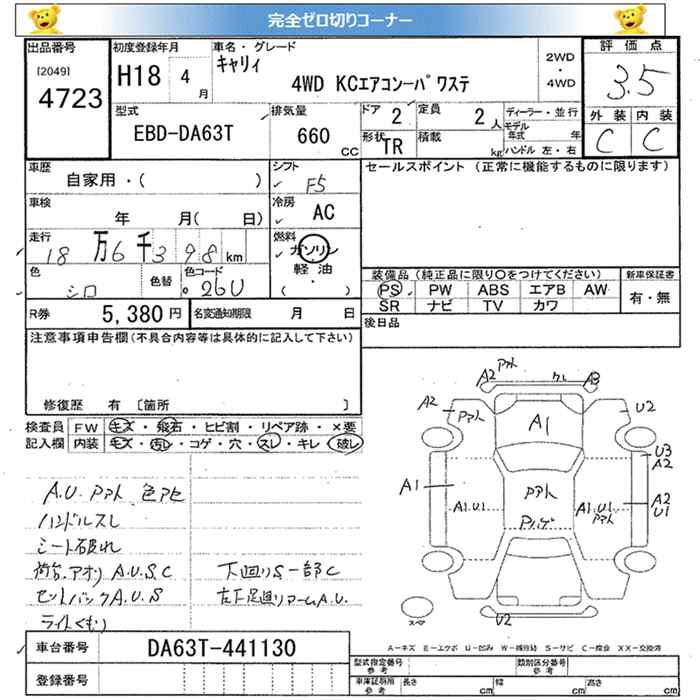 完全ゼロ切りコーナー
出品番号
[2049]
4723
初度登録年月
H18 4月
車名・グレード
キャリィ
4WD KCエアコン・パワステ
2WD
・
4WD
評価点
3.5
外装 内装
C C
型式
EBD-DA63T
排気量
660
CC
ドア 2
定員 2人
形状 TR
積載 kg
ディーラー・並行
モデル年式 年
ハンドル 左・右
車歴
自家用・( )
シフト
F5
セールスポイント (正常に機能するものに限ります)
車検
年 月( 日)
冷房
AC
走行
18万6千398km
燃料
ガソリン
軽油
( ・ )
色
シロ
色替
色コード
26U
装備品(純正品に限り〇をつけてください)
新車保証書
PS PW ABS エアB AW
SR ナビ TV カワ
有・無
R券 5,380円
名変通知期限 月 日
後日品
注意事項申告欄(不具合内容等は具体的に記入して下さい)
修復歴 有 [箇所 ]
検査員記入欄
FW キズ・飛石・ヒビ割・リペア跡・×要
内装 キズ・汚レ・コゲ・穴・スレ・キレ・破レ
A.U. Pアト 色アセ
ハンドルスレ
シート破れ
荷台.アオリ A.U.S.C
セットバック A.U.S
ライトくもり
下回りS一部C
右下足廻りアームA.U.
A2 Pアト クレ A3
A2 Pアト
U2
A1
U3
A2
A1
A1.U1
Pアト
Pハゲ
A1.U1
Pアト
A2
U1
スペア
U2
A-キズ E-エクボ U-凹み W-補修跡 S-サビ C-腐食 XX-交換済
車台番号
DA63T-441130
登録番号
型式指定番号
参考
類別区分番号
参考
車庫証明用
参考
長さ cm 幅 cm 高さ cm